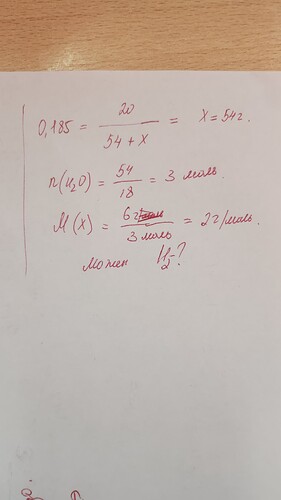 0,185 = 20 / 54 + x = x = 54 г.
n(H₂O) = 54 / 18 = 3 моль.
M(X) = 6 г / 3 моль = 2 г/моль.
может H₂-?